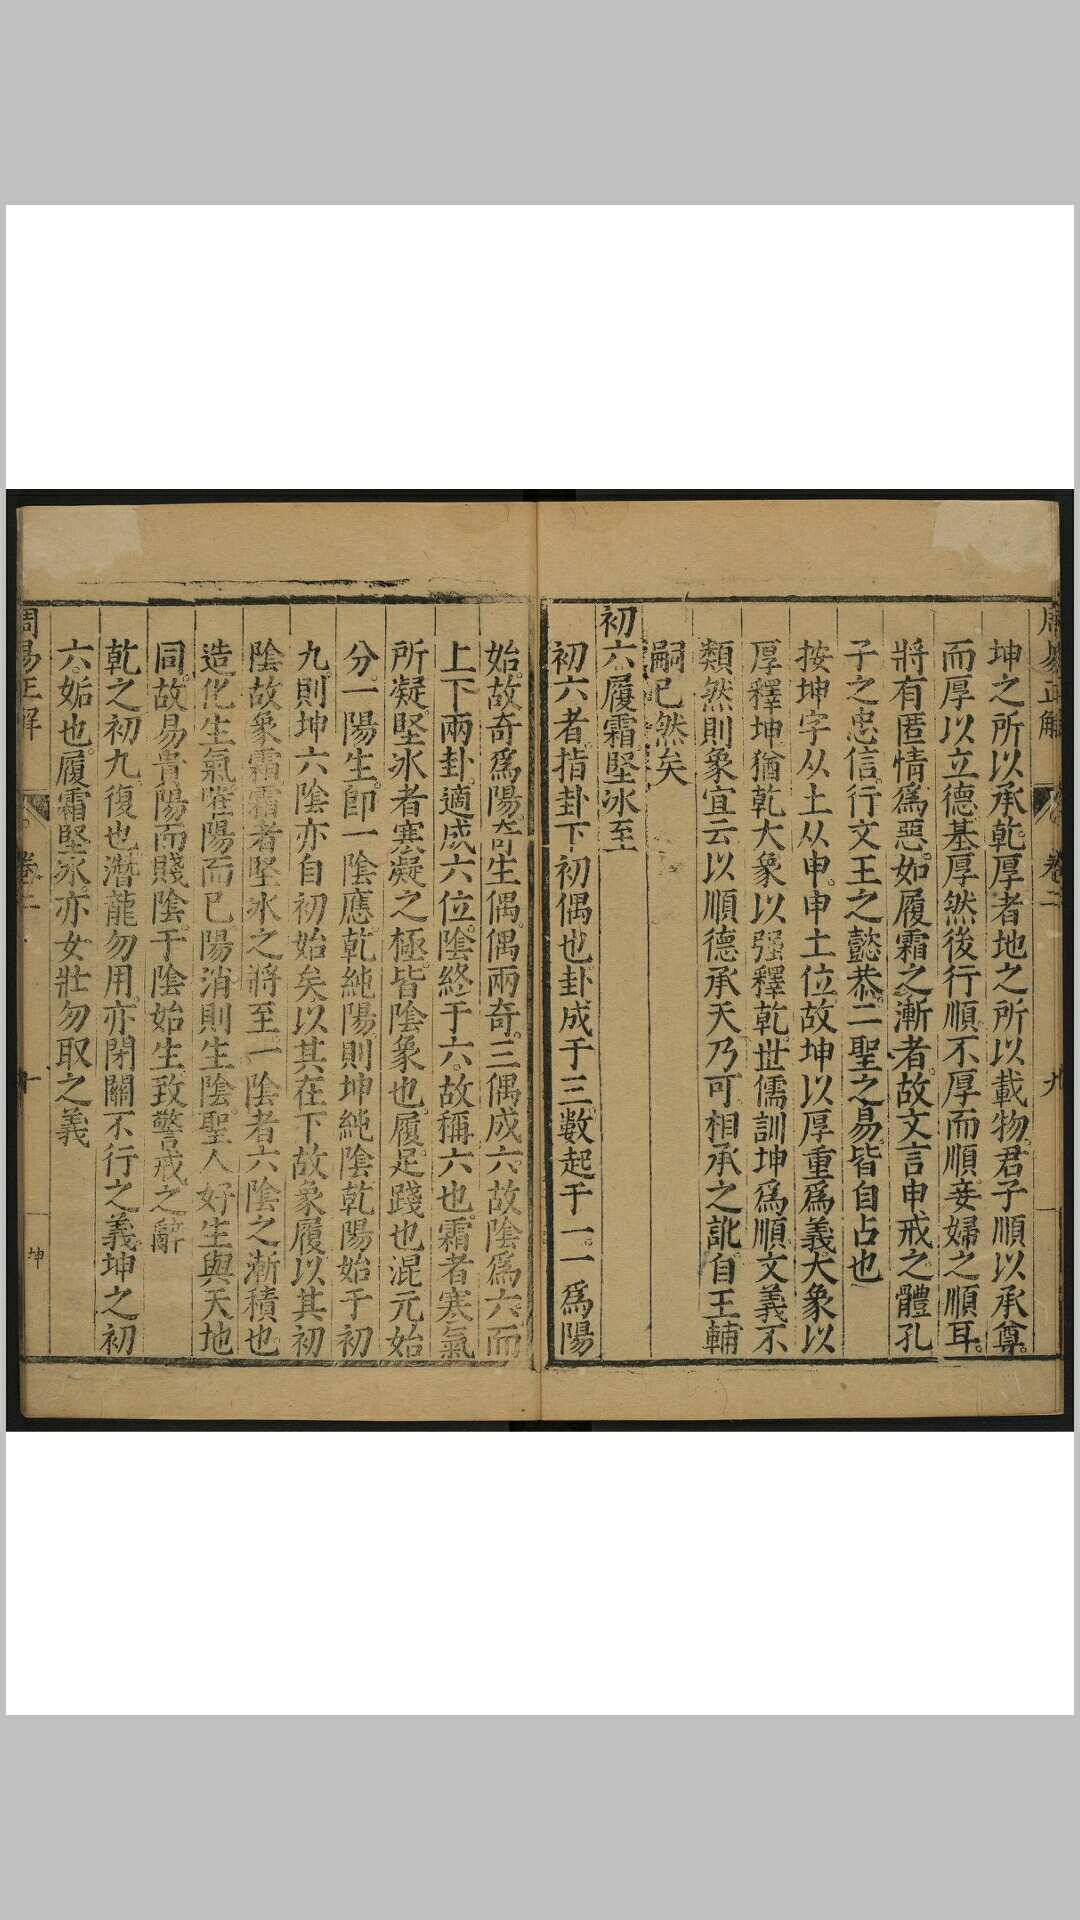 周易正解
卷二
九
坤之所以承乾厚者地之所以載物君子順以承尊
而厚以立德基厚然後行順不厚而順妾婦之順耳
將有匿情爲惡如履霜之漸者故文言申戒之體孔
子之忠信行文王之懿恭二聖之易皆自占也
按坤字从土从申申土位故坤以厚重爲義大象以
厚釋坤猶乾大象以强釋乾世儒訓坤爲順文義不
類然則象宜云以順德承天乃可相承之訛自王輔
嗣已然矣
初六履霜堅冰至
初六者指卦下初偶也卦成于三數起于一一爲陽
始故奇爲陽奇生偶偶兩奇三偶成六故陰爲六而
上下兩卦適成六位陰終于六故稱六也霜者寒氣
所凝堅冰者寒凝之極皆陰象也履足踐也混元始
分一陽生卽一陰應乾純陽則坤純陰乾陽始于初
九則坤六陰亦自初始矣以其在下故象履以其初
陰故象霜霜者堅冰之將至一陰者六陰之漸積也
造化生氣唯陽而已陽消則生陰聖人好生與天地
同故易貴陽而賤陰于陰始生致警戒之辭
乾之初九復也潛龍勿用亦閉關不行之義坤之初
六姤也履霜堅冰亦女壯勿取之義
周易正解
卷二
十
坤